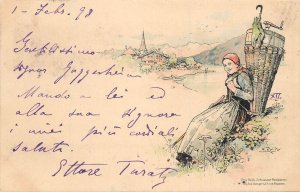 1 - Febr. 98
Gentilissimo
Signor Guggenheim
Mando a lei ed
alla sua signora
i miei più cordiali
saluti.
Ettore
XII.